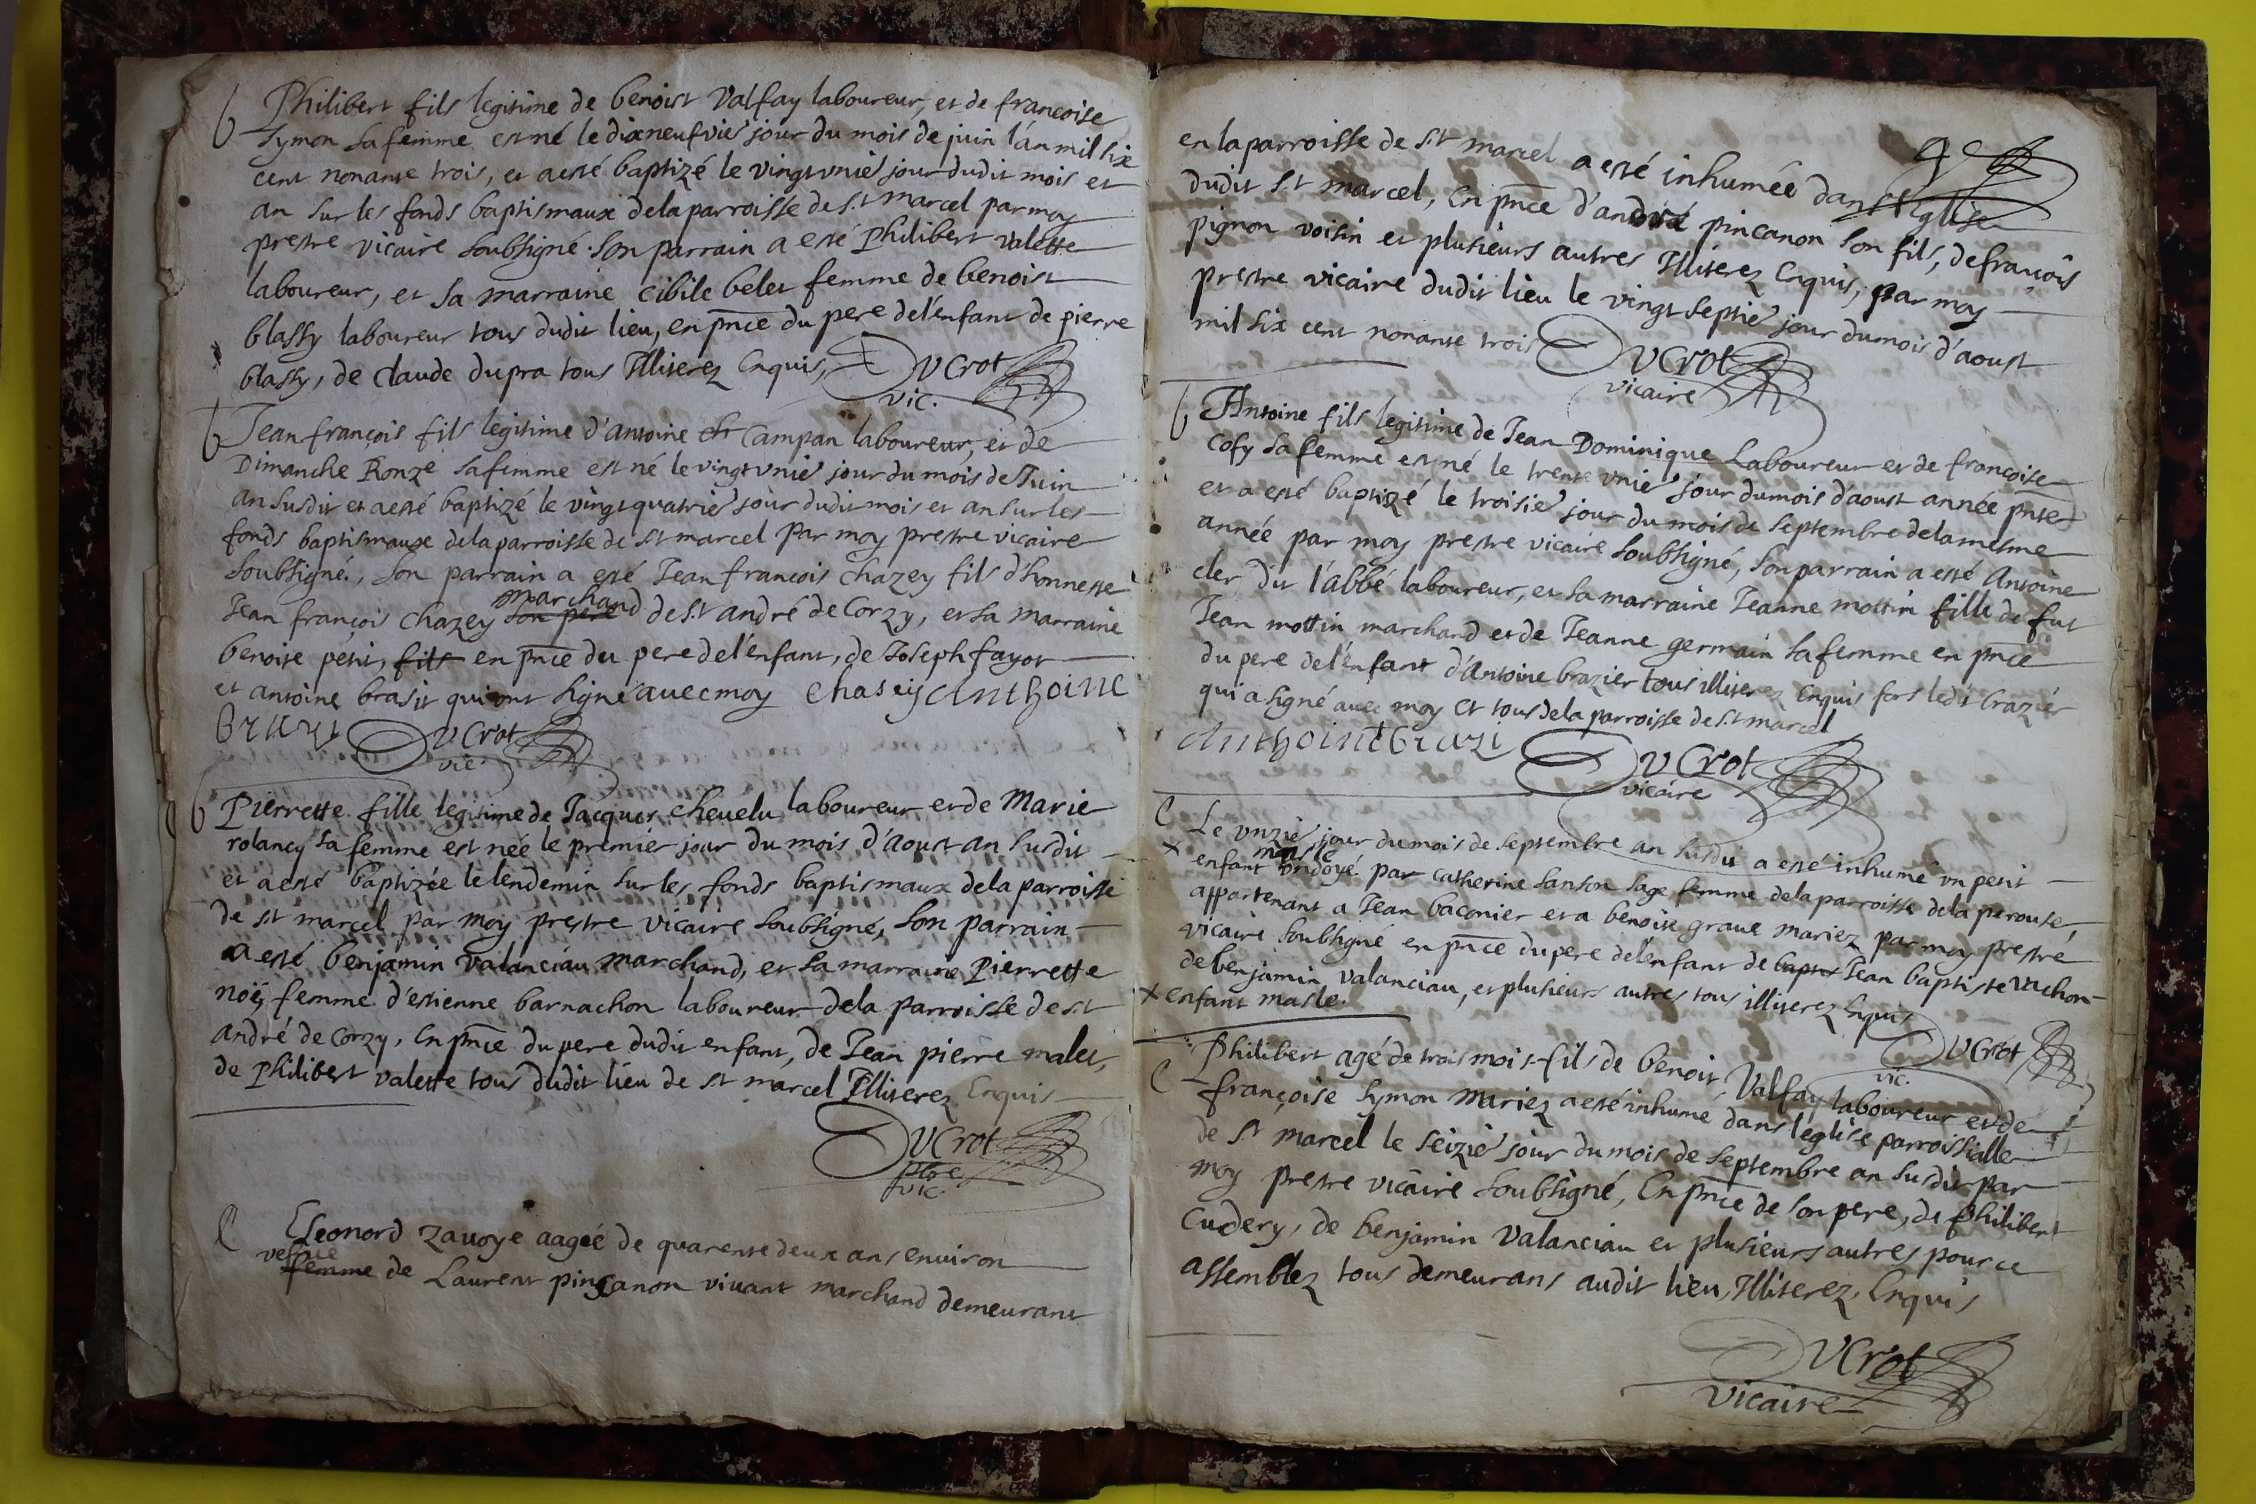 b Philibert fils legitime de benoist Valfay laboureur, et de francoise
Symon sa femme est né le dixneufvie jour du mois de juin l'an mil six
cent nonante trois, et a esté baptizé le vingt unie jour dudit mois et
an sur les fonds baptismaux de la parroisse de st marcel par moy
prestre vicaire soubsigné. Son parrain a esté Philibert valette
laboureur, et sa marraine Cibile belet femme de benoist
blassy laboureur tous dudit lieu, en pnce du pere de l'enfant de pierre
blassy, de Claude dupra tous Illiterez Enquis, Ducrot
vic.
b Jean françois fils legitime d'Antoine Campan laboureur, et de
Dimanche Ronze sa femme est né le vingt unie jour du mois de Juin
an susdit et a esté baptizé le vingt quatrie jour dudit mois et an sur les
fonds baptismaux de la parroisse de st marcel par moy prestre vicaire
soubsigné, son parrain a esté Jean françois chazey fils d'honneste
marchand
Jean françois chazey son pere de st andré de Corzy, et sa marraine
benoite petit, fils en pnce du pere de l'enfant, de Joseph fayot
et antoine brasit qui ont signé avec moy Chaseij Anthoine
Brazi Ducrot
vic.
b Pierrette fille legitime de Jacques chevelu laboureur et de Marie
rolancy sa femme est née le premier jour du mois d'Aoust an susdit
et a esté baptizée le lendemin sur les fonds baptismaux de la parroisse
de st marcel par moy prestre vicaire soubsigné, son parrain
a esté benjamin valanciau marchand, et sa marraine Pierrette
noëj femme d'estienne barnachon laboureur de la parroisse de st
andré de Corzy, En pnce du pere dudit enfant, de Jean pierre malet,
de Philibert valette tous dudit lieu de st marcel Illiterez Enquis
Ducrot
pbre
vic.
C Eleonord Zavoye aagée de quarente deux ans environ
vefve
femme de Laurent pinçanon vivant marchand demeurant
en la parroisse de st marcel a esté inhumée dans l'Eglise
dudit st marcel, En pnce d'andré pincanon son fils, de françois
pignon voisin et plusieurs autres Illiterez Enquis, par moy
prestre vicaire dudit lieu le vingt septie jour du mois d'aoust
mil six cent nonante trois Ducrot
vicaire
b Antoine fils legitime de Jean Dominique Laboureur et de françoise
Cofy sa femme est né le trente unie jour du mois d'aoust année pnte
et a esté baptizé le troisie jour du mois de Septembre de la mesme
année par moy prestre vicaire soubsigné, son parrain a esté Antoine
cler dit l'abbé laboureur, et sa marraine Jeanne mottin fille de fut
Jean mottin marchand et de Jeanne germain sa femme en pnce
du pere de l'enfant d'Antoine brazier tous illiterez Enquis fors ledit brazier
qui a signé avec moy et tous de la parroisse de st marcel
Anthoine Brazi Ducrot
vicaire
C Le unzie jour du mois de septembre an susdit a esté inhumé un petit
masle
x enfant ondoyé par Catherine Sanson Sage femme de la parroisse de la perouse,
appartenant a Jean baconier et a benoite grave mariez par moy prestre
vicaire soubsigné en pnce du pere de l'enfant de Jean baptiste vachon
de benjamin valanciau, et plusieurs autres tous illiterez Enquis
x enfant masle. Ducrot
vic.
C Philibert agé de trois mois fils de benoit Valfay laboureur et de
françoise Symon mariez a esté inhumé dans l'eglise parroissialle
de St marcel le seizie jour du mois de Septembre an susdit par
moy prestre vicaire soubsigné, En pnce de son pere, de philibert
Cudery, de benjamin valanciau et plusieurs autres pour ce
assemblez tous demeurans audit lieu, Illiterez, Enquis
Ducrot
vicaire